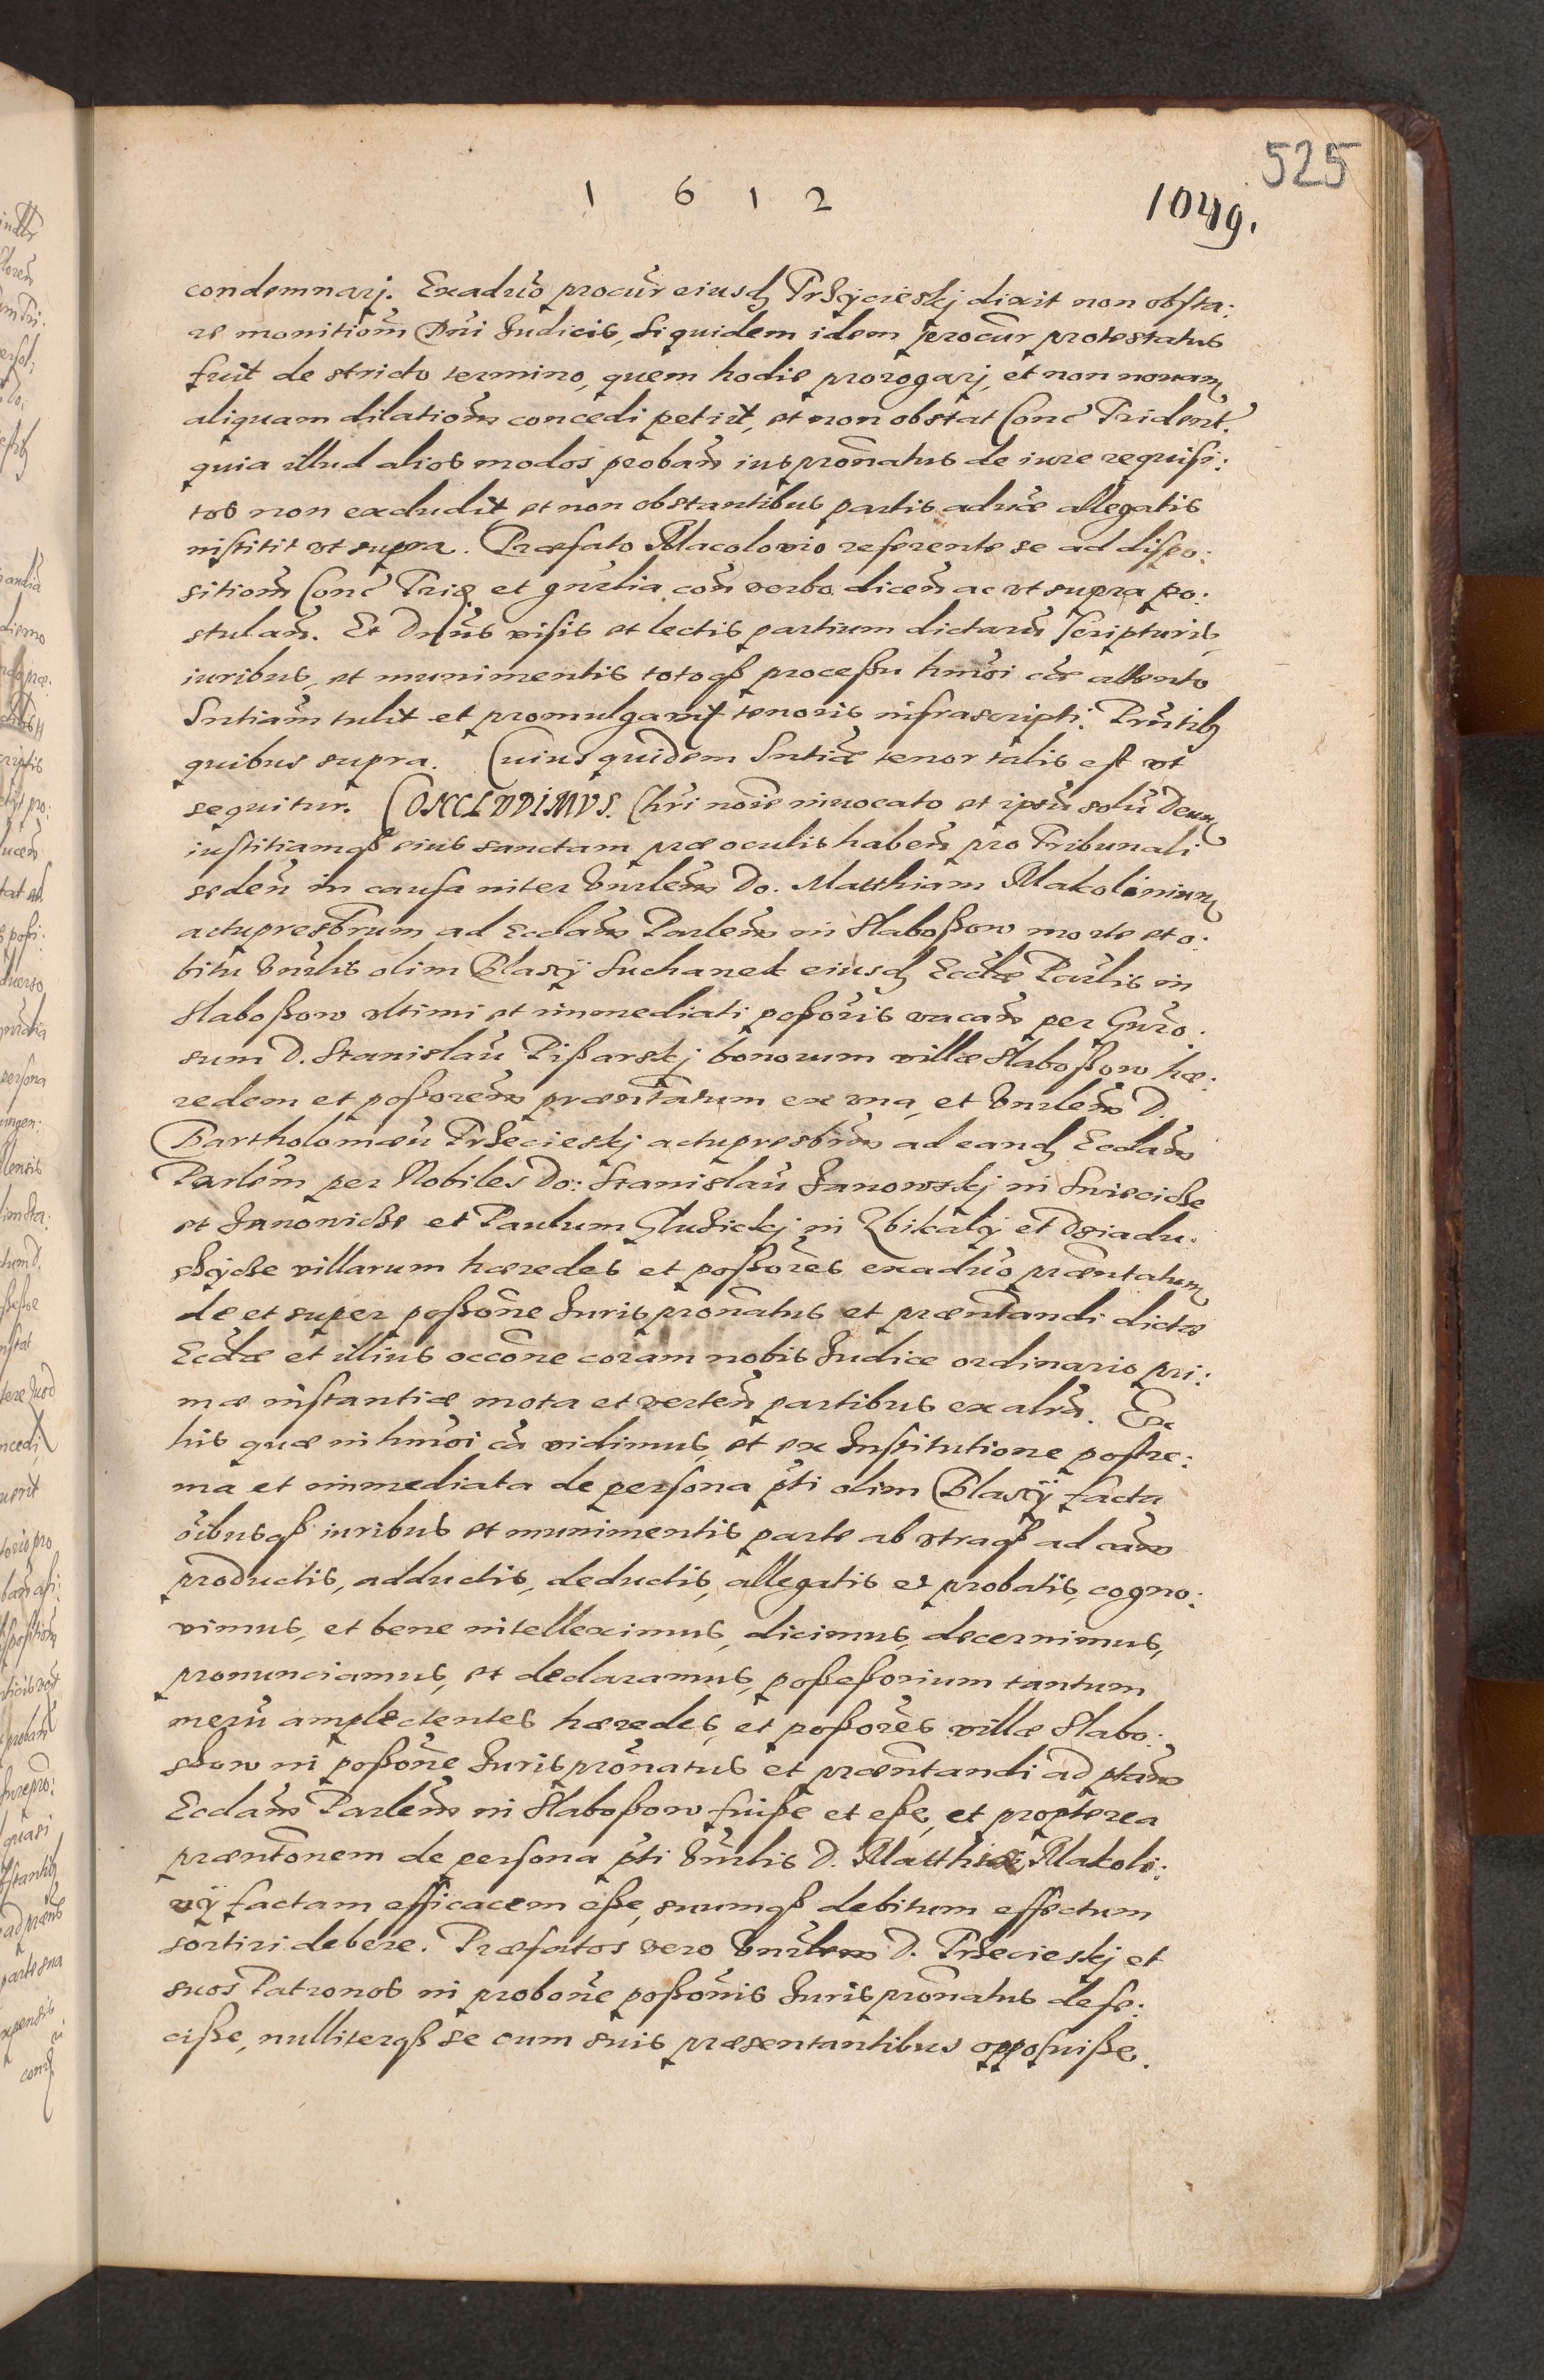 525
1 6 1 2
1049.
condemnarj. Exaduo procur eiusdē Prżyciesłkj dixit non obsta:
re monitiom̄ Dn̄i Judicis, siquidem idem procur protestatus
fuit de stricto termino, quem hodie prorogarj, et non nouam
aliquam dilationē concedi petiit, et non obstat Conc Trident.
quia illud alios modos proban̄ ius prōnatus de iure requisi:
tos non excludit et non obstantibus partis aduæ allegatis
institit vt supra. Præfato Makolouio referente se ad dispo:
sitiom̄ Conc Trid et gn̄rlia con̄ verbo dicen̄ ac vt supra po:
stulan̄. Et Dn̄us visis et lectis partium dictarū scripturis,
iuribus, et munimentis totoqȝ processu hmōi cāe attento
Sntiam̄ tulit et promulgauit tenoris infrascripti. Prn̄tibȝ
quibus supra. Cuius quidem Sntiæ tenor talis est vt
sequitur. CONCLVDIMVS. Chrī noīe inuocato et ipsū solū Deum
iustitiamqȝ eius sanctam præ oculis haben̄ pro Tribunali
seden̄ in causa inter Vn̄rlem̄ Do. Matthiam Makolinium
actupresbrum ad Eccl̄am Parlem̄ in Słaboszow morte et o:
bitu Vn̄rlis olim Blasÿ Suchanek eiusdē Eccl̄æ Parlis in
Słaboszow vltimi et immediati possōris vacan̄ per Gn̄ro:
sum D. Stanislaū Pisarskj bonorum villæ Słaboszow hæ:
redem et possorem̄ præntatum ex vna, et Vn̄rlem̄ D.
Bartholomæū Przeciesłkj actupresbrm̄ ad eandē Eccl̄am
Parlem̄ per Nobiles Do: Stanislaū Janowskj in Swiecicze
et Janowicze et Paulum Głuzickj in Zbikalÿ et Dziadu:
szÿcze villarum hæredes et possores exaduo præntatum
de et super possōne Juris prōnatus et præntandi dictæ
Eccl̄æ et illius occōne coram nobis Judice ordinario pri:
mæ instantiæ mota et verten̄ partibus ex altrā. Ex
his quæ in hmōi cā vidimus, et ex Institutione postre:
ma et immediata de persona pti olim Blasÿ facta
oībusqȝ iuribus et munimentis parte ab vtraqȝ ad cām
productis, adductis, deductis, allegatis et probatis, cogno:
vimus, et bene intelleximus, dicimus, decernimus,
pronunciamus, et declaramus, possessorium tantum
merū amplectentes hæredes, et possōres villæ Słabo:
szow in possōne Juris prōnatus et præntandi ad ptam̄
Eccl̄am Parlem̄ in Słaboszow fuisse et esse, et propterea
præntōnem de persona pti Vn̄rlis D. Matthiæ Makoli:
uÿ factam efficacem esse, suumqȝ debitum effectum
sortiri debere. Præfatos vero Vn̄rlem D. Przeciesłkj et
suos Patronos in probōne possōnis Juris prōnatus defe:
cisse, nulliterqȝ se cum suis præsentantibus opposuisse.